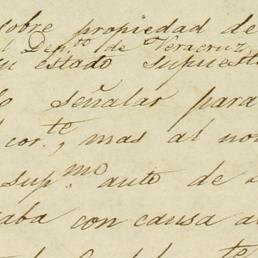 sobre propiedad de
l Dep.to de Veracruz,
su estado supuesto
señalar para
cor.te, mas al no
sup.mo auto de
aba con causa a